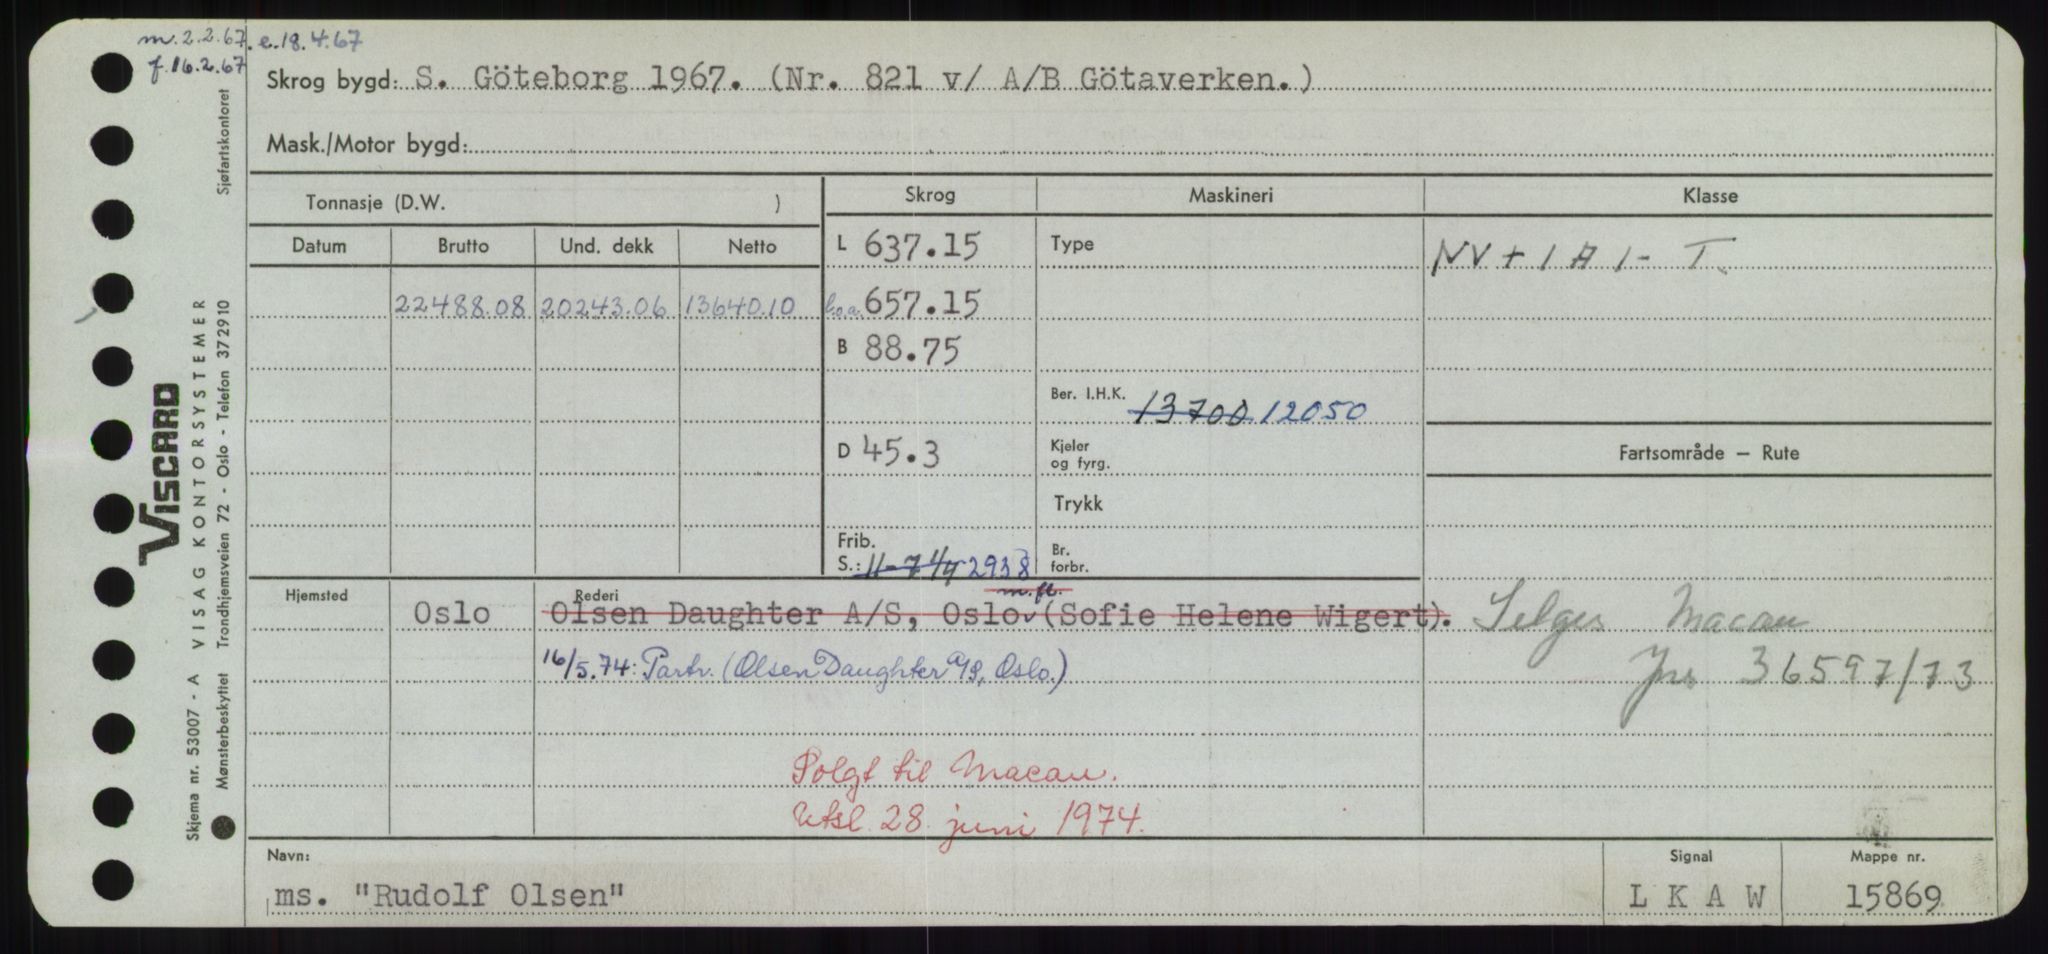 m. 2.2.67. e.18.4.67
f. 16.2.67
Skrog bygd: S. Göteborg 1967. (Nr. 821 v/ A/B Götaverken.)
Mask./Motor bygd:
Tonnasje (D.W. )
Skrog Maskineri Klasse
Datum Brutto Und. dekk Netto
L 637.15 Type NV + 1 A 1 - T.
22488.08 20243.06 13640.10 l.o.a. 657.15
B 88.75
Ber. I.H.K. 13700 12050
D 45.3 Kjeler og fyrg.
Fartsområde — Rute
Trykk
Frib.
S.: 11-7 1/4 2938 Br. forbr.
Hjemsted Oslo Rederi m.fl.
Olsen Daughter A/S, Oslo (Sofie Helene Wigert).
Selges Macau
16/5.74: Partr. (Olsen Daughter A/S, Oslo.)
Jnr 36597/73
Solgt til Macau.
Utsl. 28. juni 1974.
Navn: ms. "Rudolf Olsen"
Signal L K A W
Mappe nr. 15869
VISCARD
VISAG KONTORSYSTEMER
Skjema nr. 53007 - A
Mønsterbeskyttet Trondhjemsveien 72 - Oslo - Telefon 372910
Sjøfartskontoret